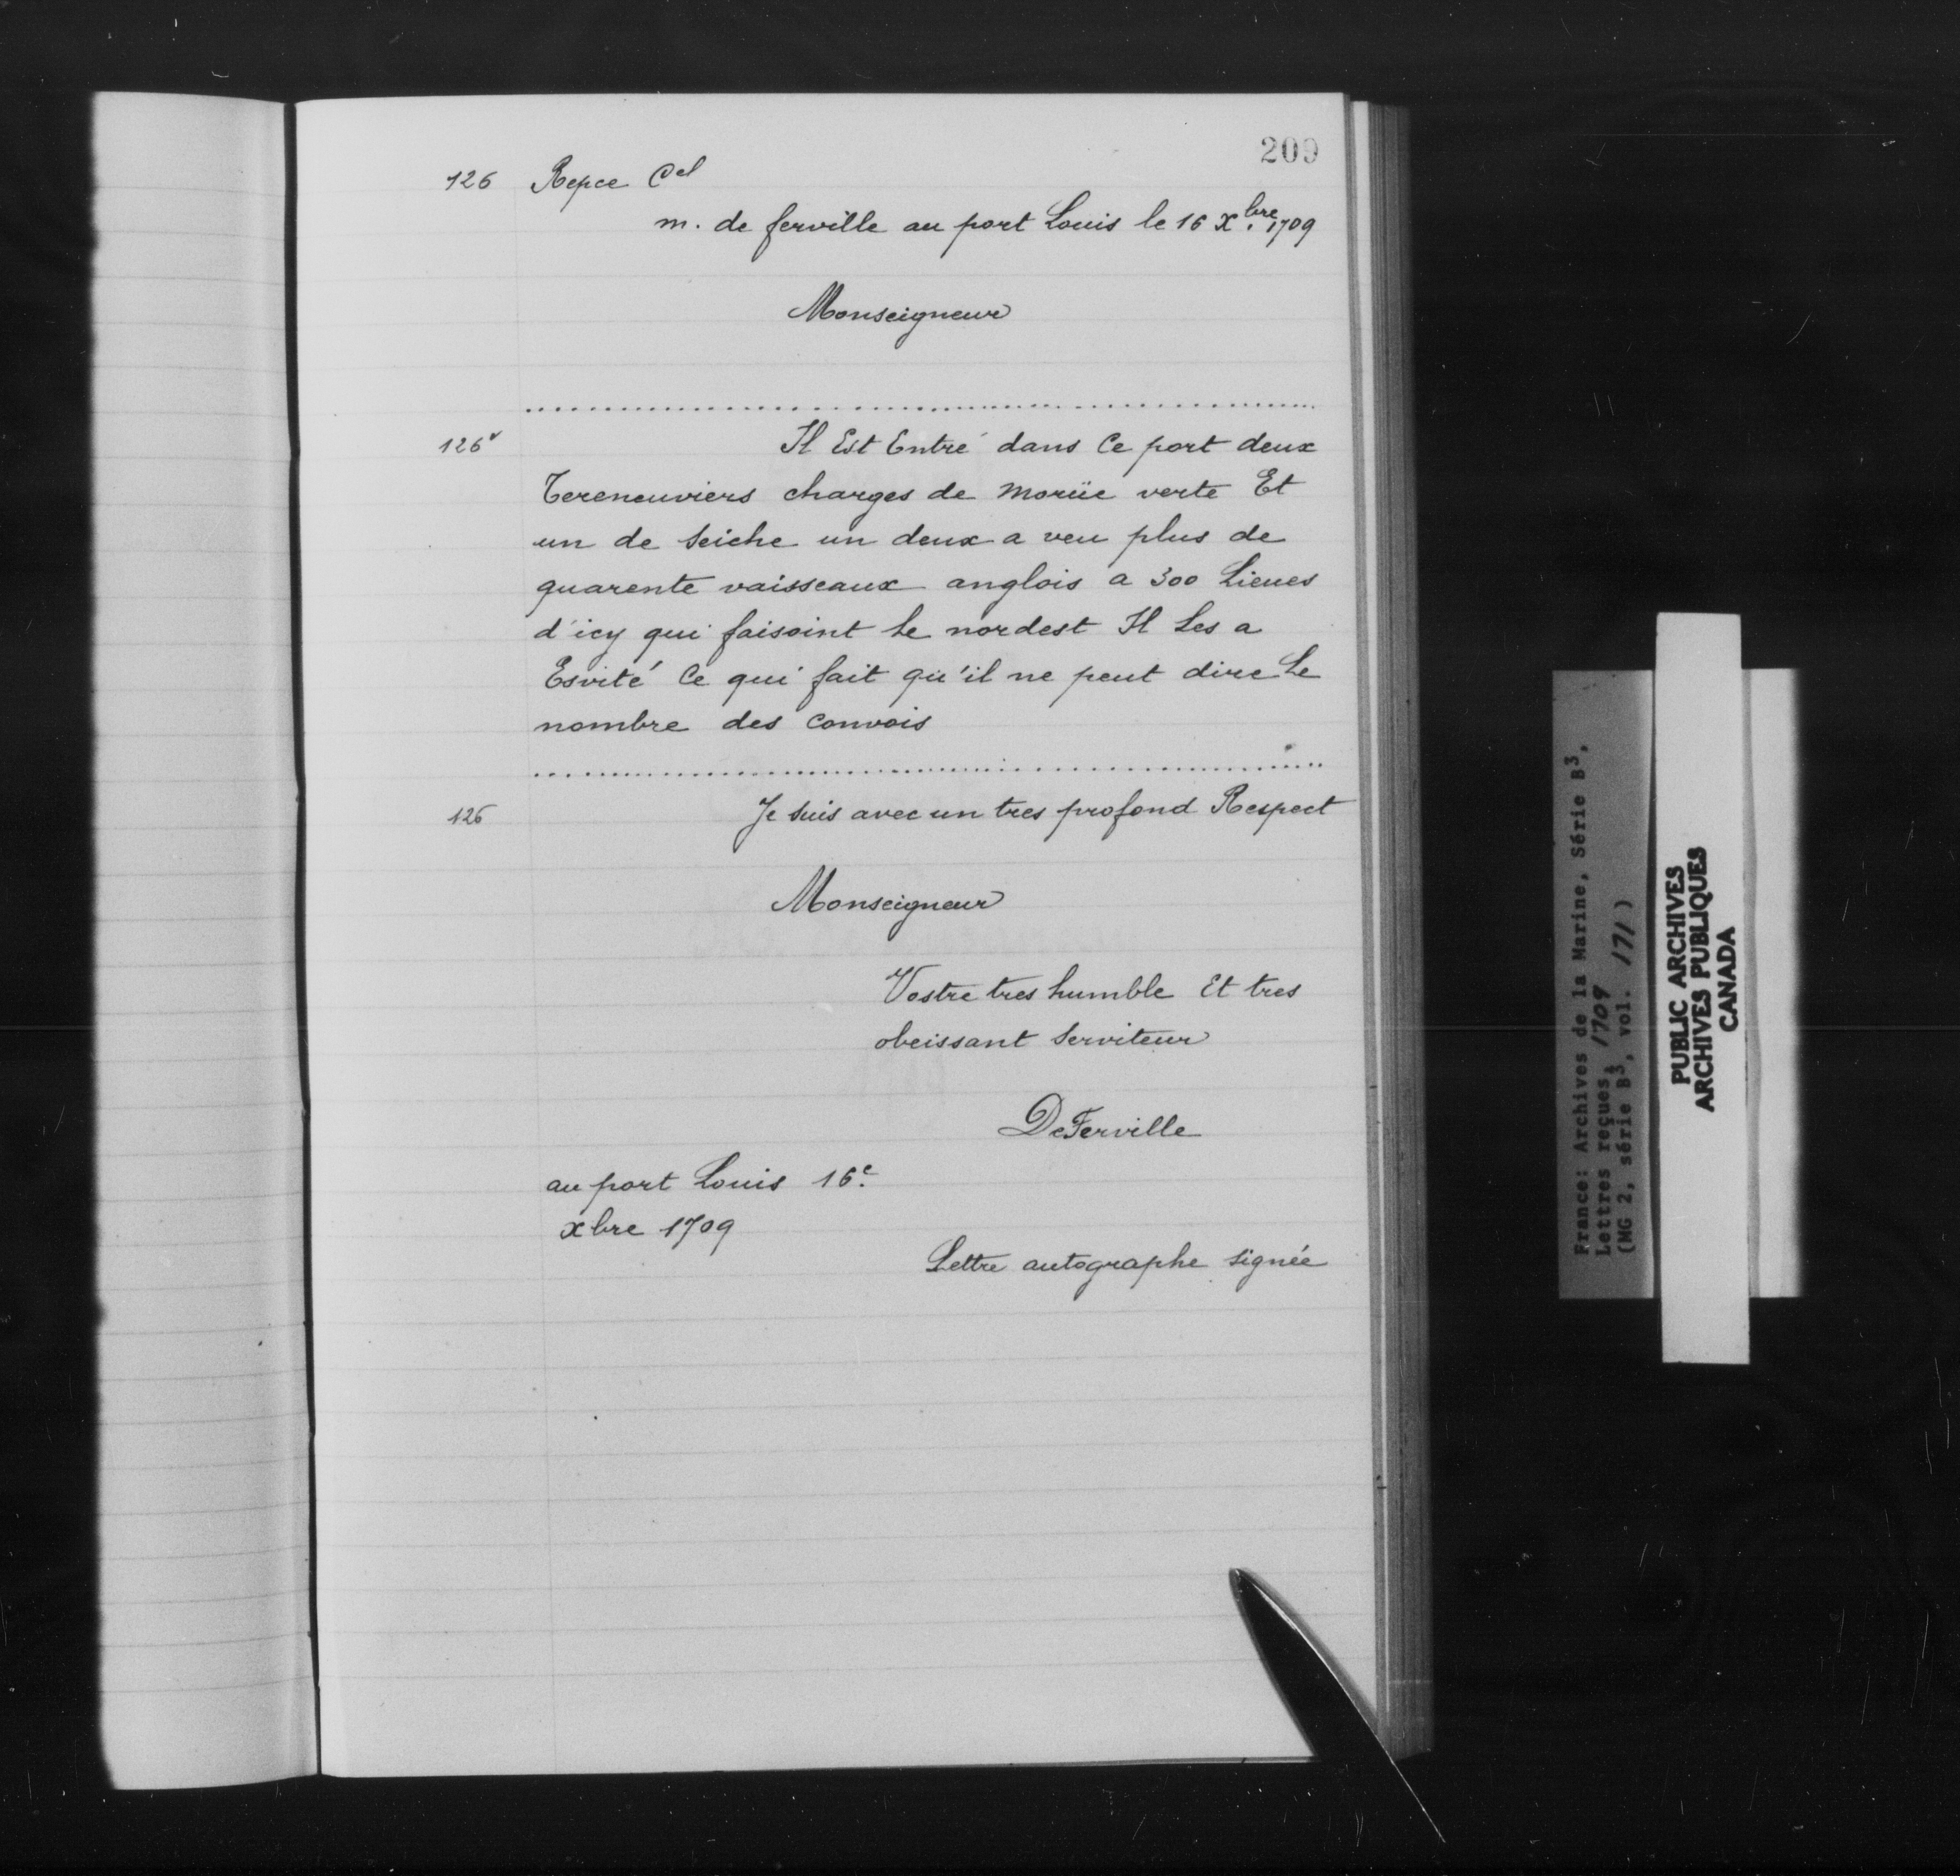 209
126 Repce Cel
m. de ferville au port Louis le 16 Xbre. 1709
Monseigneur
126v Il Est Entré dans Ce port deux
Tereneuviers charges de Moruë verte Et
un de Seiche un deux a veu plus de
quarente vaisseaux anglois a 300 Lieues
d'icy qui faisoint Le nordest Il Les a
Esvité Ce qui fait qu'il ne peut dire Le
nombre des Convois
126 Je suis avec un tres profond Respect
Monseigneur
Vostre tres humble Et tres
obeissant Serviteur
DeFerville
au port Louis 16e.
xbre 1709
Lettre autographe signée
France: Archives de la Marine, Série B3,
Lettres reçues, 1709
(MG 2, série B3, vol. 171)
PUBLIC ARCHIVES
ARCHIVES PUBLIQUES
CANADA